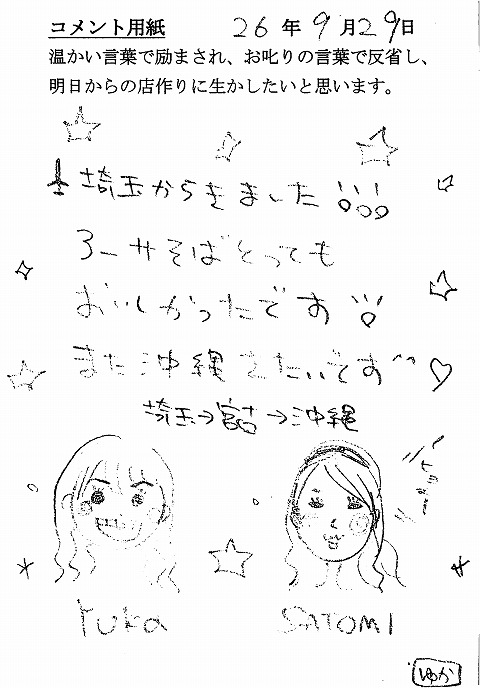 コメント用紙 26年9月29日
温かい言葉で励まされ、お叱りの言葉で反省し、
明日からの店作りに生かしたいと思います。
埼玉からきました!!!
ろーサそばとっても
おいしかったです!!
また沖縄きたいです^^♡
埼玉→宮古→沖縄
YUKA
SATOMI
ゆか